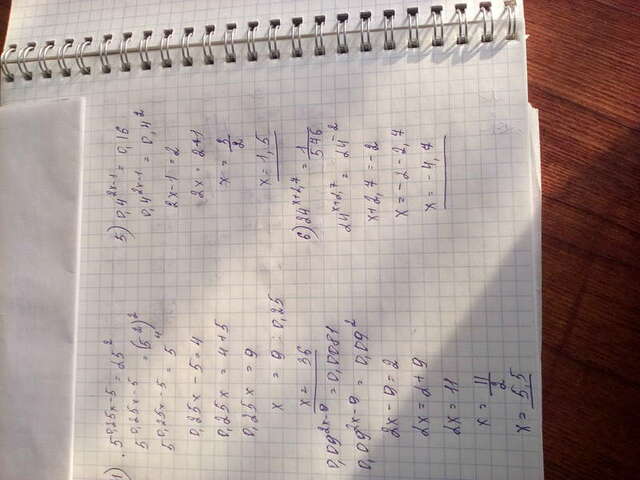 1) 5^{0,25x-5} = 25^2
5^{0,25x-5} = (5^2)^2
5^{0,25x-5} = 5^4
0,25x - 5 = 4
0,25x = 4 + 5
0,25x = 9
x = 9 : 0,25
x = 36
0,09^{2x-9} = 0,0081
0,09^{2x-9} = 0,09^2
2x - 9 = 2
2x = 2 + 9
2x = 11
x = 11/2
x = 5,5
5) 0,4^{2x-1} = 0,16
0,4^{2x-1} = 0,4^2
2x - 1 = 2
2x = 2 + 1
x = 3/2
x = 1,5
6) 24^{x+2,7} = 1/576
24^{x+2,7} = 24^{-2}
x + 2,7 = -2
x = -2 - 2,7
x = -4,7